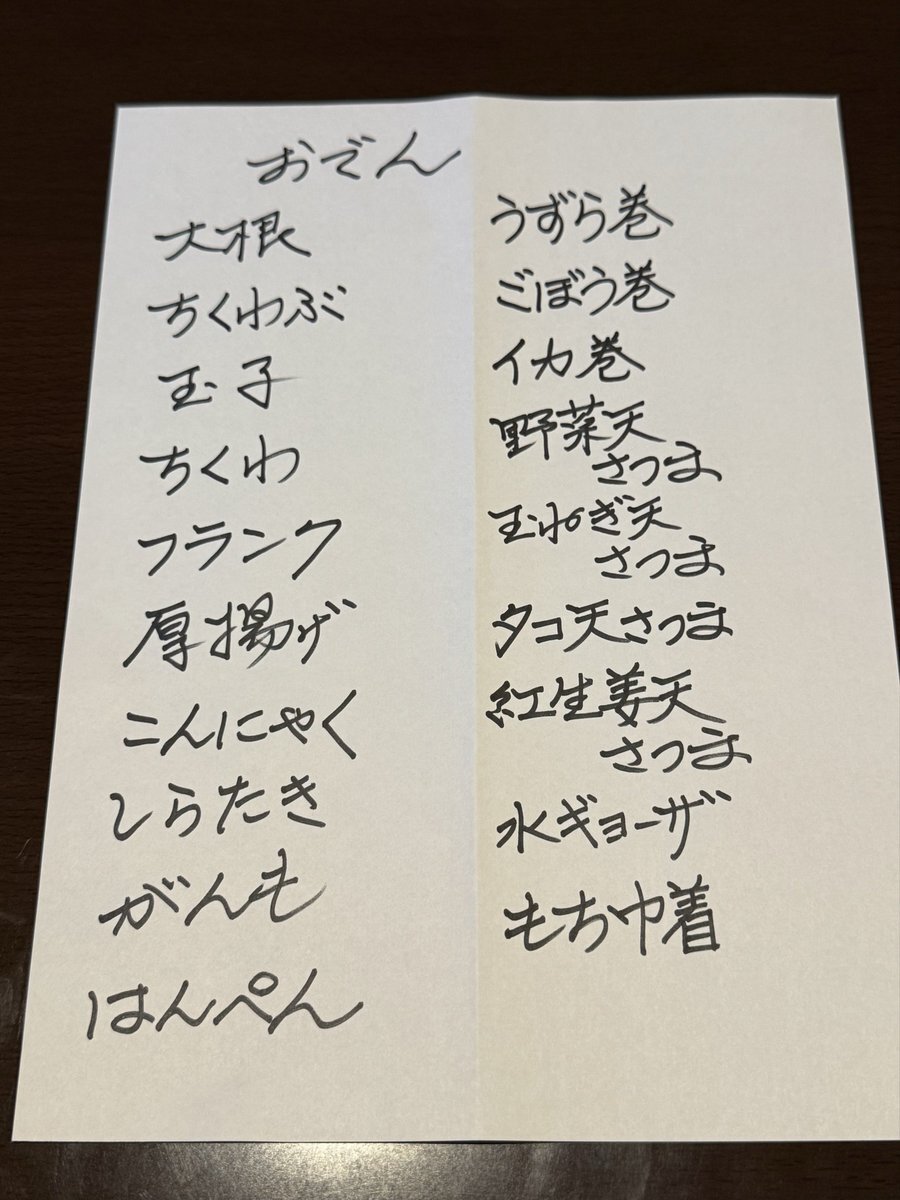 おでん
大根
ちくわぶ
玉子
ちくわ
フランク
厚揚げ
こんにゃく
しらたき
がんも
はんぺん
うずら巻
ごぼう巻
イカ巻
野菜天
さつま
玉ねぎ天
さつま
タコ天さつま
紅生姜天
さつま
水ギョーザ
もち巾着